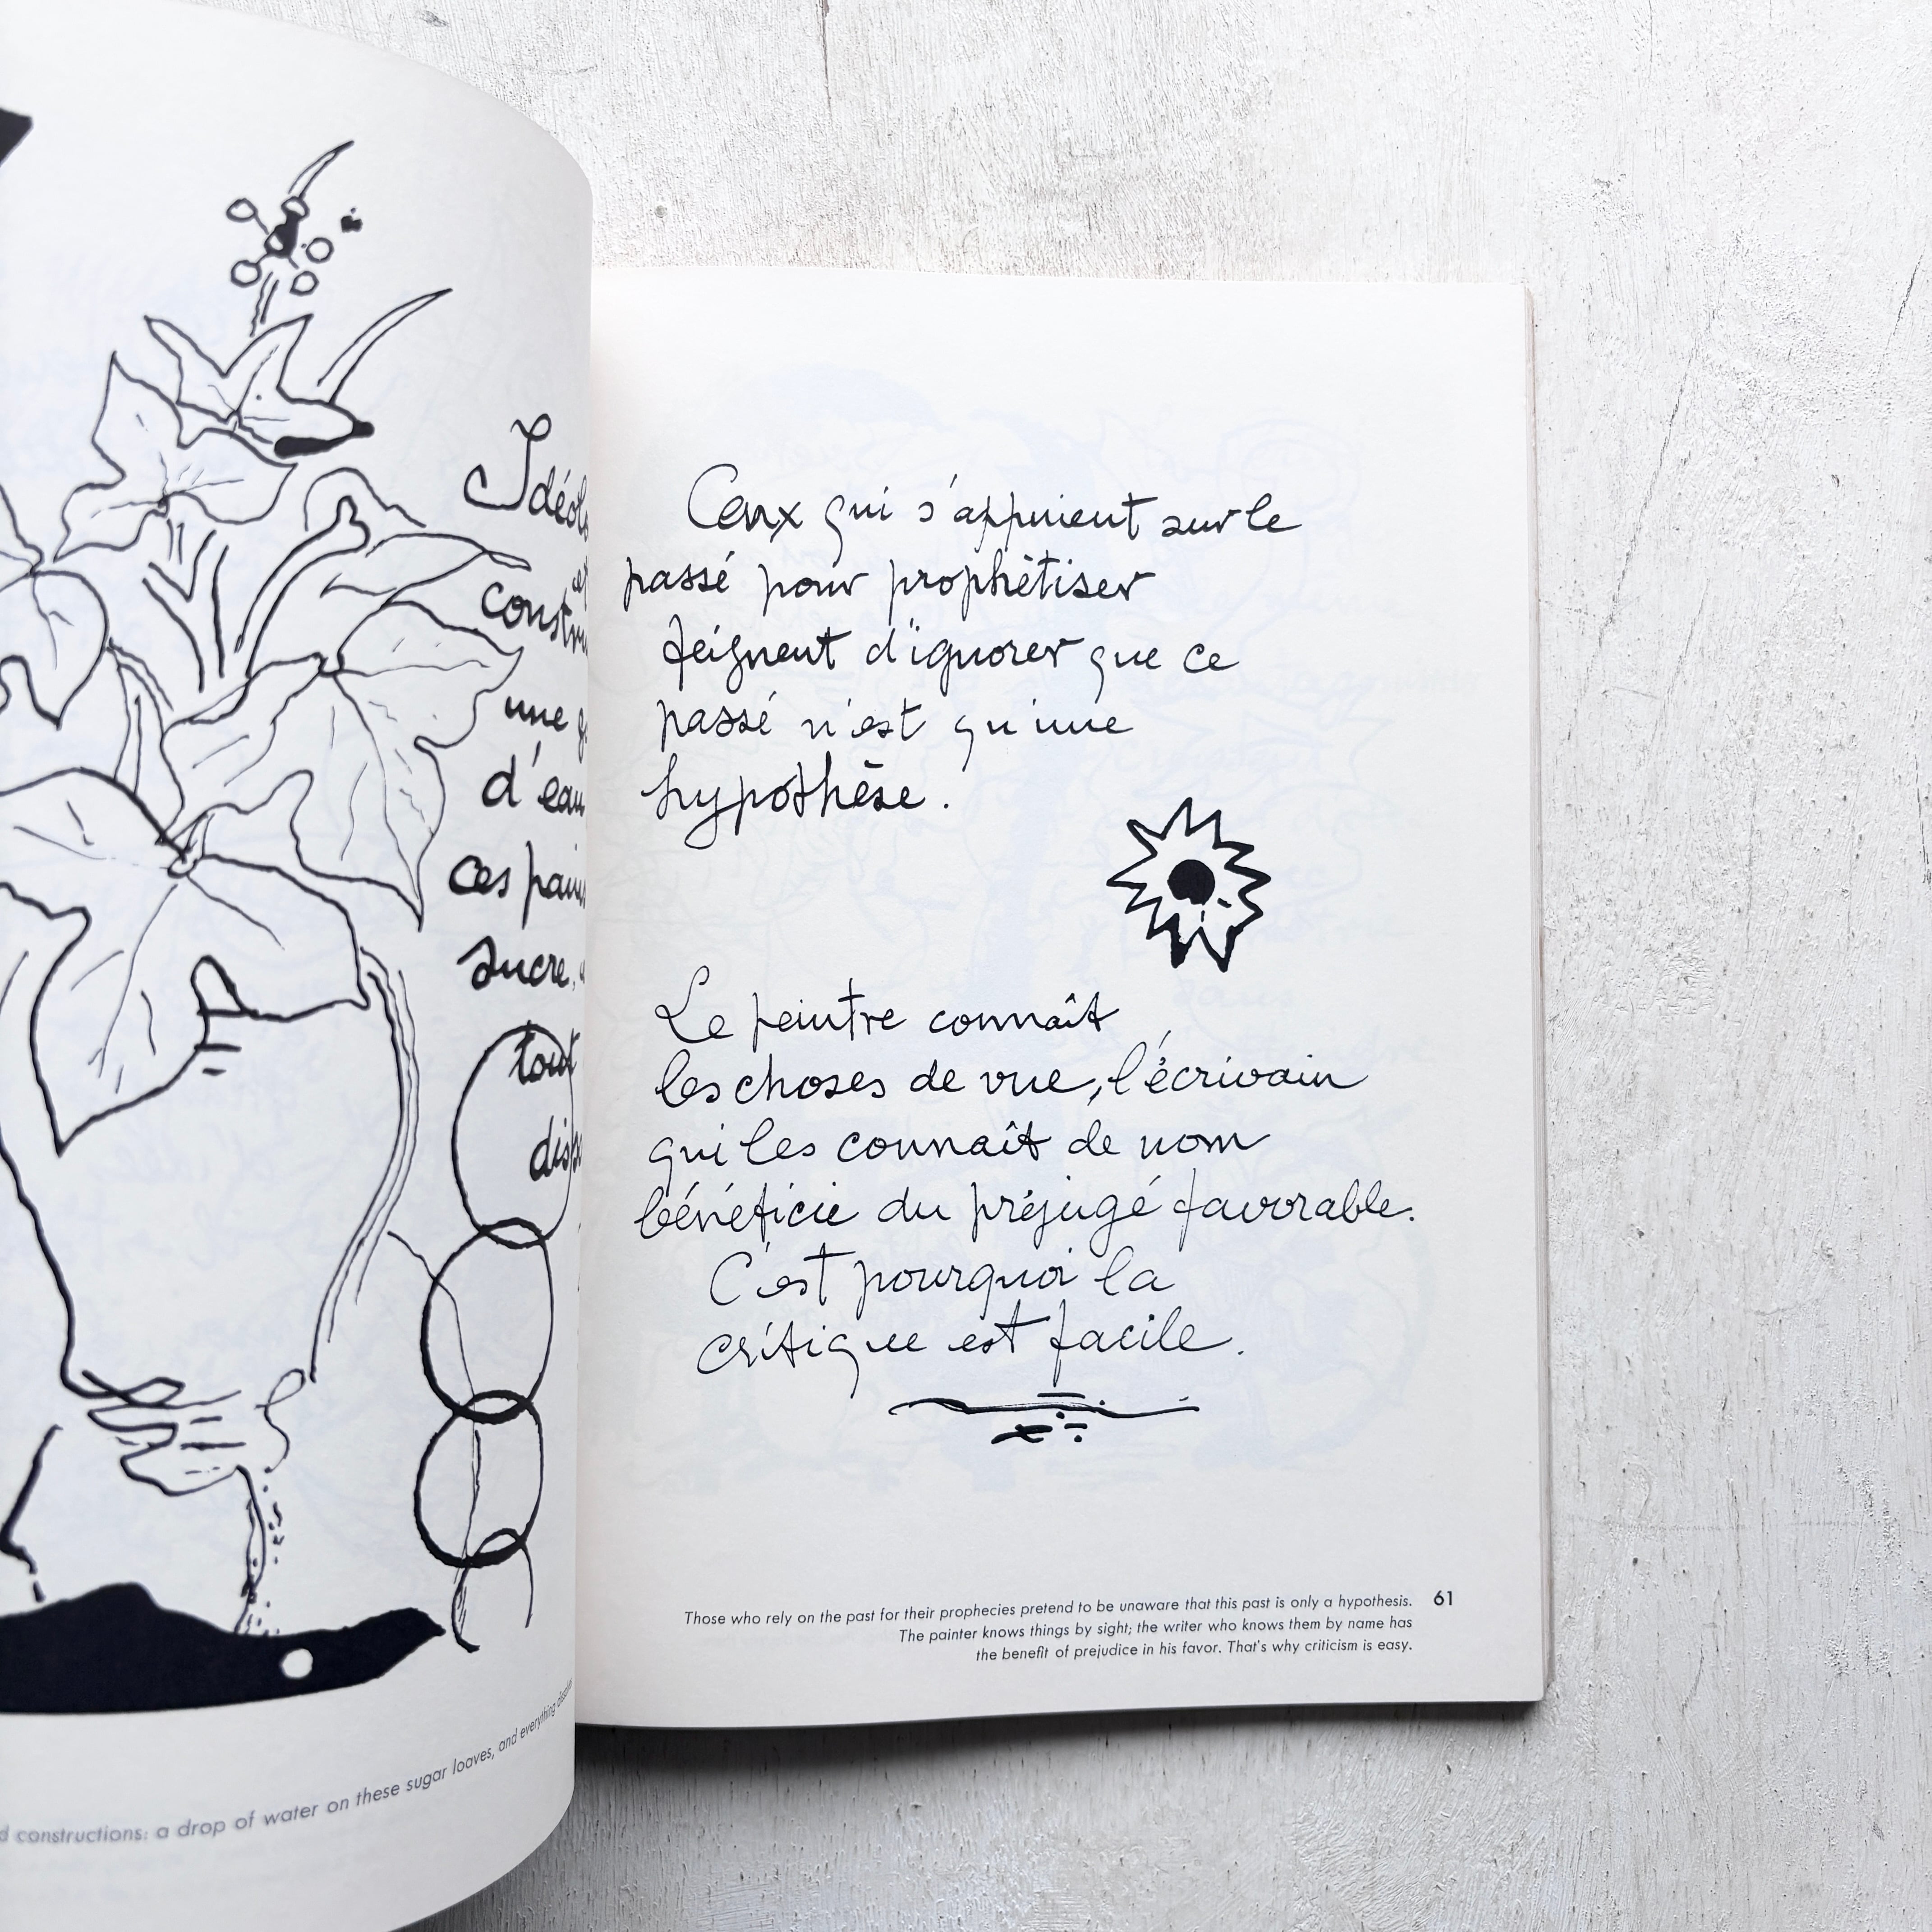 constr
une
d'eau
ces pains
sucre,
tout
d constructions: a drop of water on these sugar loaves, and everything
Ceux qui s'appuient sur le
passé pour prophétiser
feignent d'ignorer que ce
passé n'est qu'une
hypothèse.
Le peintre connaît
les choses de vue, l'écrivain
qui les connaît de nom
bénéficie du préjugé favorable.
C'est pourquoi la
critique est facile.
Those who rely on the past for their prophecies pretend to be unaware that this past is only a hypothesis. 61
The painter knows things by sight; the writer who knows them by name has
the benefit of prejudice in his favor. That's why criticism is easy.